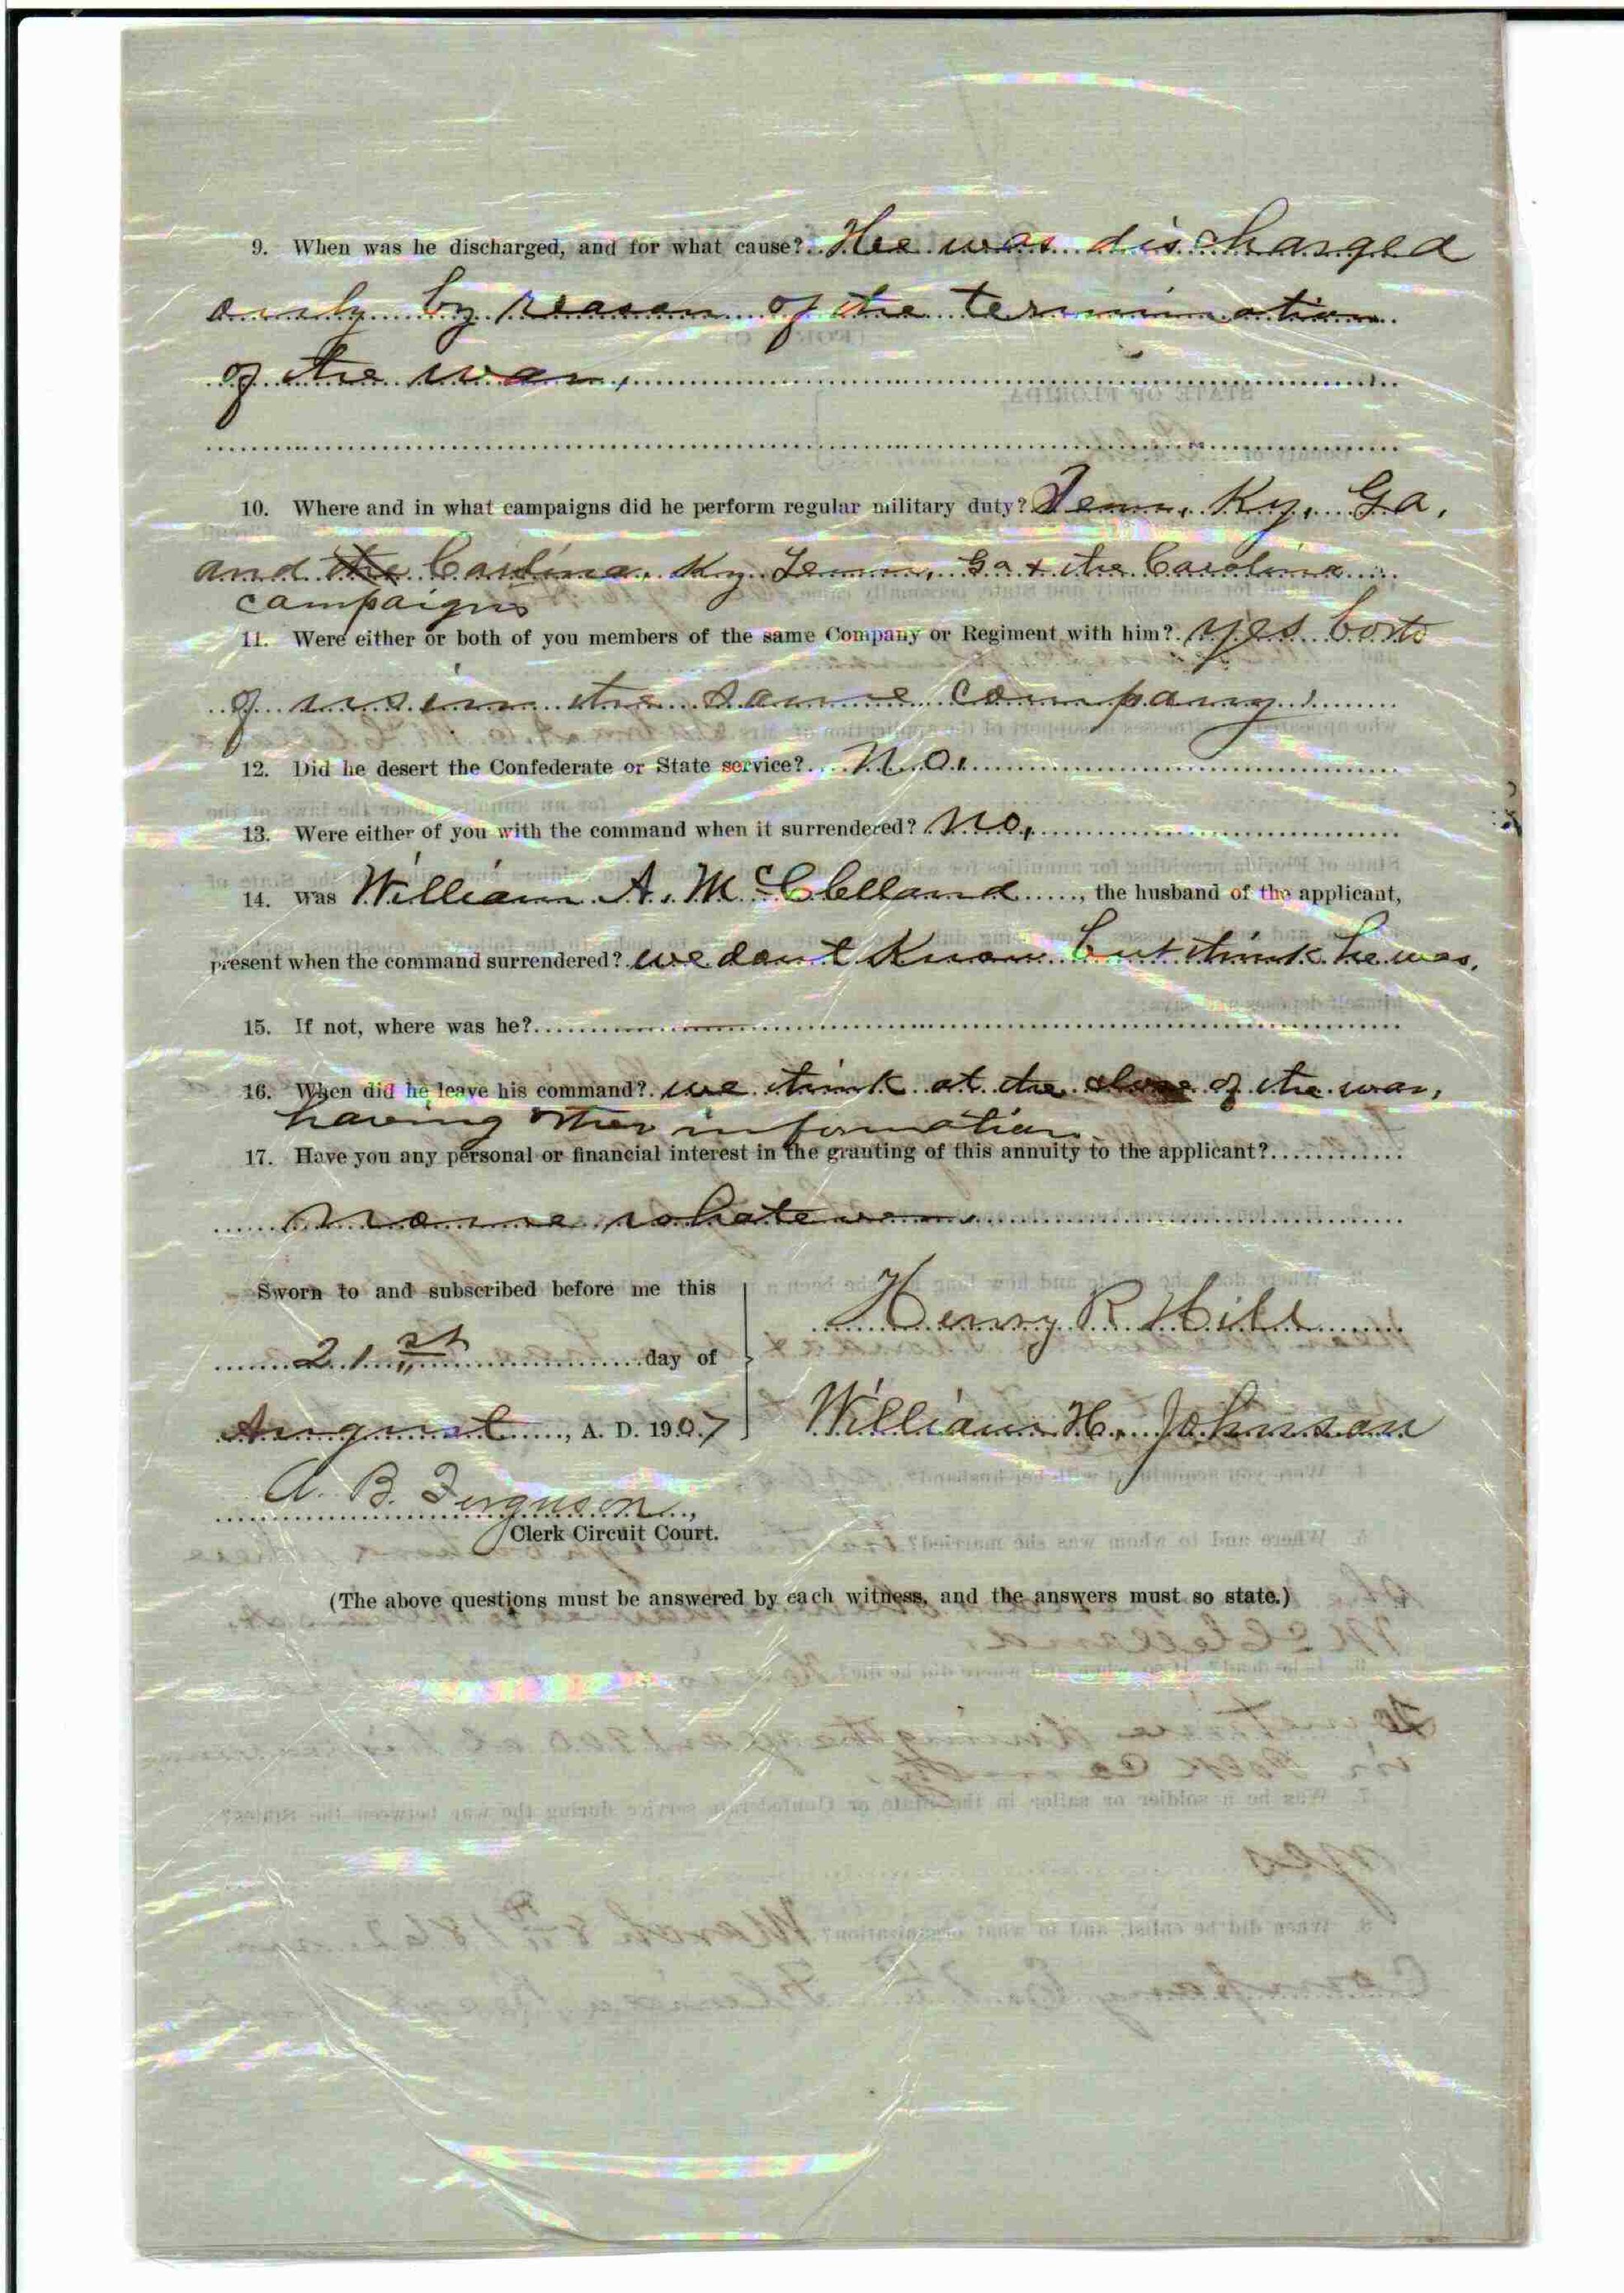 9. When was he discharged, and for what cause? He was discharged
only by reason of the termination
of the war.
10. Where and in what campaigns did he perform regular military duty? Tenn. Ky. Ga.
and the Carlina. Ky Tenn. Ga & the Carolina
campaigns
11. Were either or both of you members of the same Company or Regiment with him? yes both
of us in the same company.
12. Did he desert the Confederate or State service? No.
13. Were either of you with the command when it surrendered? No.
14. Was William A. McClelland, the husband of the applicant,
present when the command surrendered? we dont Know but think he was.
15. If not, where was he?
16. When did he leave his command? we think at the close of the war,
having other information
17. Have you any personal or financial interest in the granting of this annuity to the applicant?
none whatever
Sworn to and subscribed before me this
21st day of
August, A. D. 1907
Henry R Hill
William H. Johnson
A. B. Ferguson,
Clerk Circuit Court.
(The above questions must be answered by each witness, and the answers must so state.)